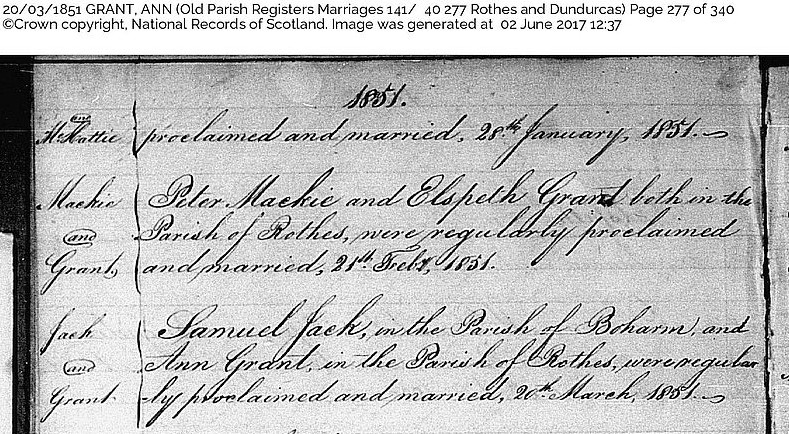 20/03/1851 GRANT, ANN (Old Parish Registers Marriages 141/ 40 277 Rothes and Dundurcas) Page 277 of 340
©Crown copyright, National Records of Scotland. Image was generated at 02 June 2017 12:37
1851.
and
McHattie proclaimed and married, 28th January, 1851.
Mackie Peter Mackie and Elspeth Grant both in the
and Parish of Rothes, were regularly proclaimed
Grant, and married, 21th Feby, 1851.
Jack Samuel Jack, in the Parish of Boharm, and
and Ann Grant, in the Parish of Rothes, were regular
Grant ly proclaimed and married, 20th March, 1851.